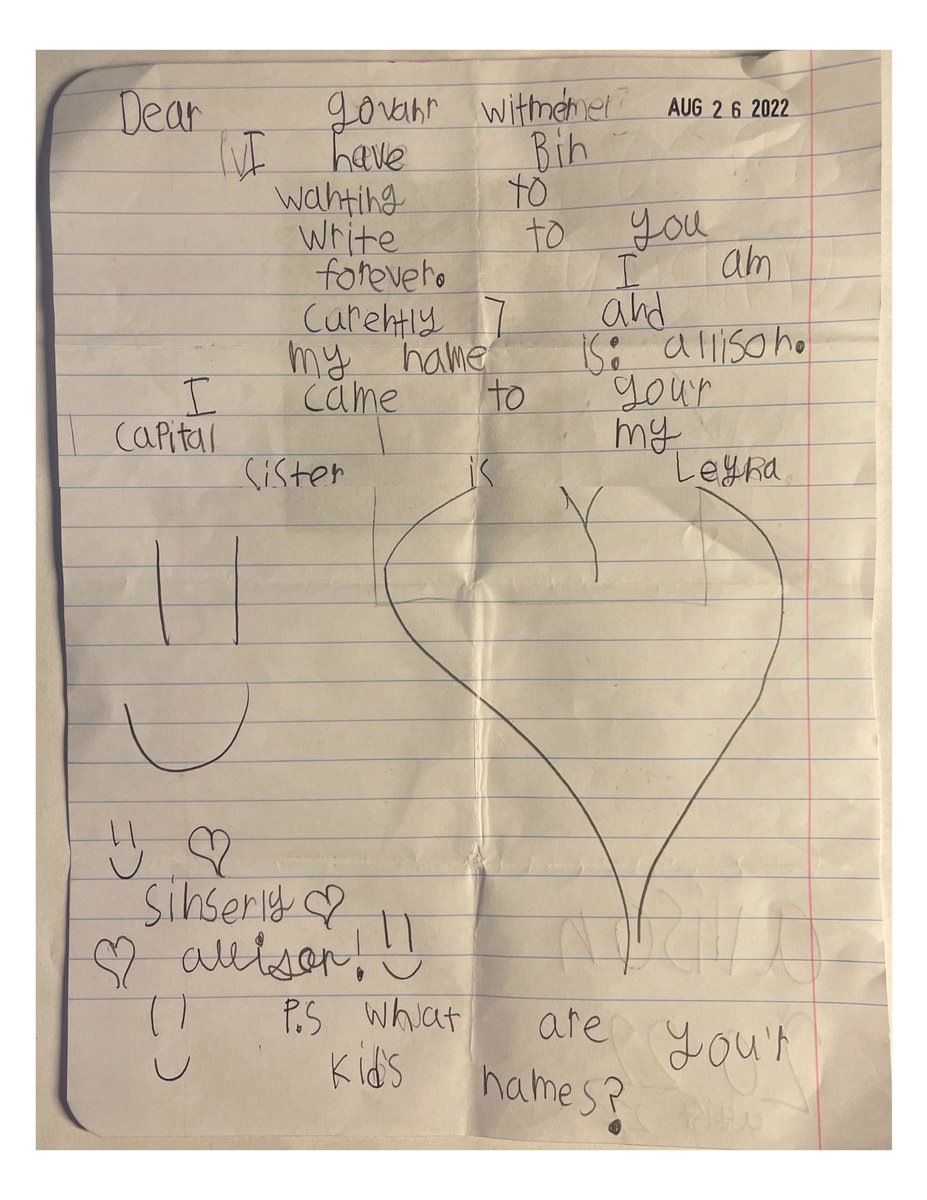 Dear govahr witmemer AUG 26 2022
I have Bin
wanting to
write to you
forever. I am
curently 7 and
my name is: allison.
I came to your
capital my
sister is Leyna
sinserly
allison!
P.S what are you'r
kids names?